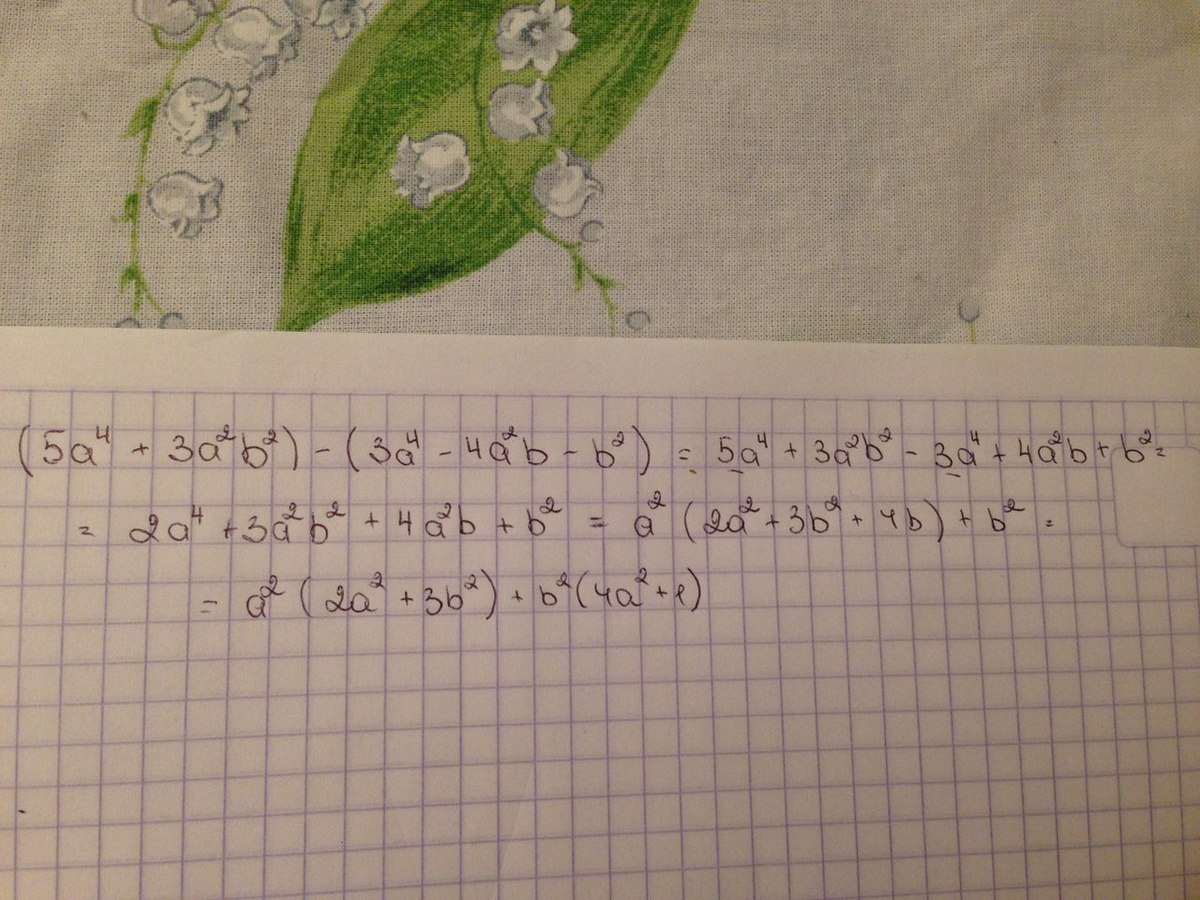 (5a⁴ + 3a²b²) - (3a⁴ - 4a²b - b²) = 5a⁴ + 3a²b² - 3a⁴ + 4a²b + b² =
= 2a⁴ + 3a²b² + 4a²b + b² = a² (2a² + 3b² + 4b) + b² =
= a² (2a² + 3b²) + b² (4a² + 1)